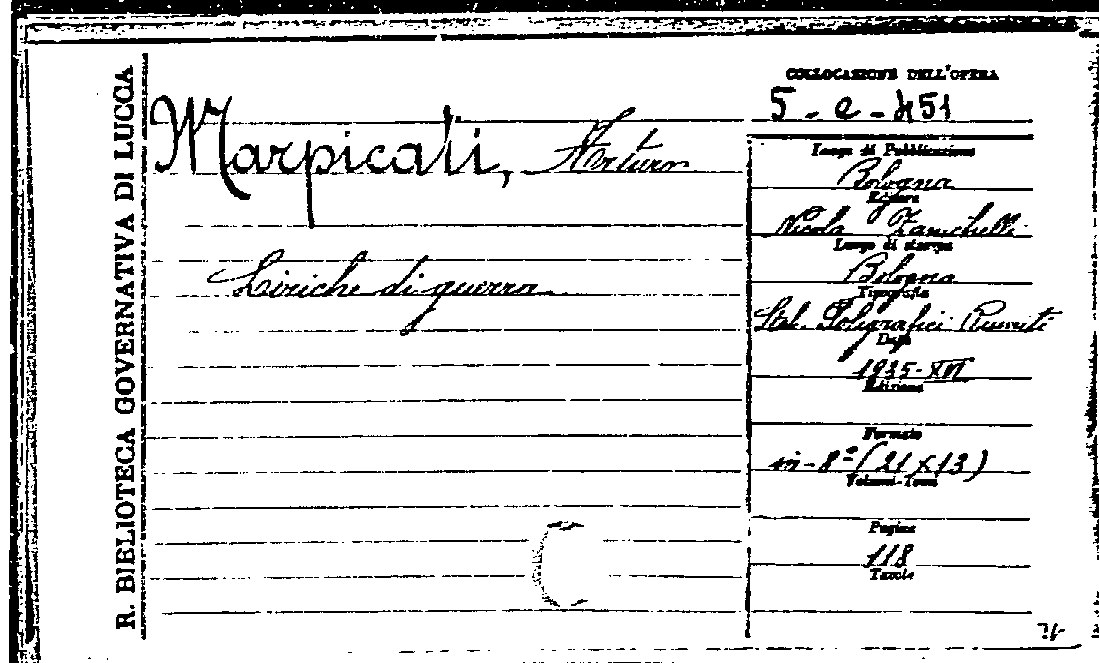 R. BIBLIOTECA GOVERNATIVA DI LUCCA
COLLOCAZIONE DELL'OPERA
5 - e - 451
Marpicati, Arturo
Luogo di Pubblicazione
Bologna
Editore
Nicola Zanichelli
Liriche di guerra
Luogo di stampa
Bologna
Tipografia
Stab. Poligrafici Riuniti
Data
1935-XIII
Edizione
Formato
in-8° (21 x 13)
Volumi-Tomi
Pagine
118
Tavole